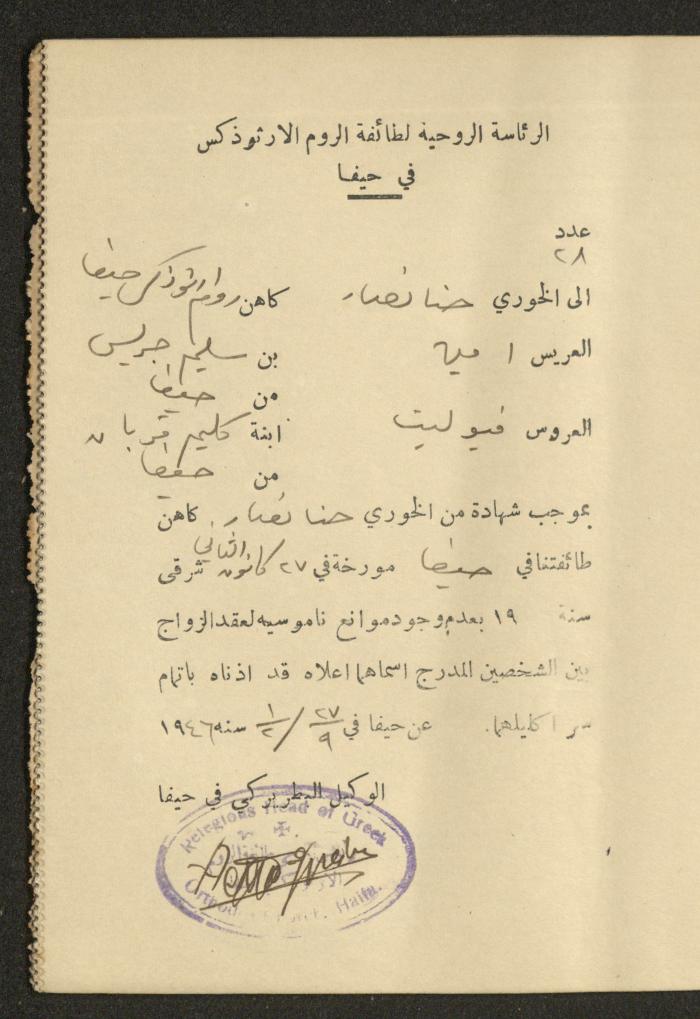 الرئاسة الروحية لطائفة الروم الارثوذكس
في حيفا
عدد
٢٨
الى الخوري حنا نصار كاهن روم ارثوذكس حيفا
العريس اميل بن سليم جريس
من حيفا
العروس فيوليت ابنة كليم قربان
من حيفا
بموجب شهادة من الخوري حنا نصار كاهن
طائفتنا في حيفا مورخة في ٢٧ كانون الثاني شرقى
سنة ١٩ بعدم وجود موانع ناموسيه لعقد الزواج
بين الشخصين المدرج اسماهما اعلاه قد اذناه باتمام
سر اكليلهما. عن حيفا في ٢٧/٩ ١/٢ سنه ١٩٤٦
الوكيل البطريركي في حيفا
Relegious Head of Greek
Haifa.